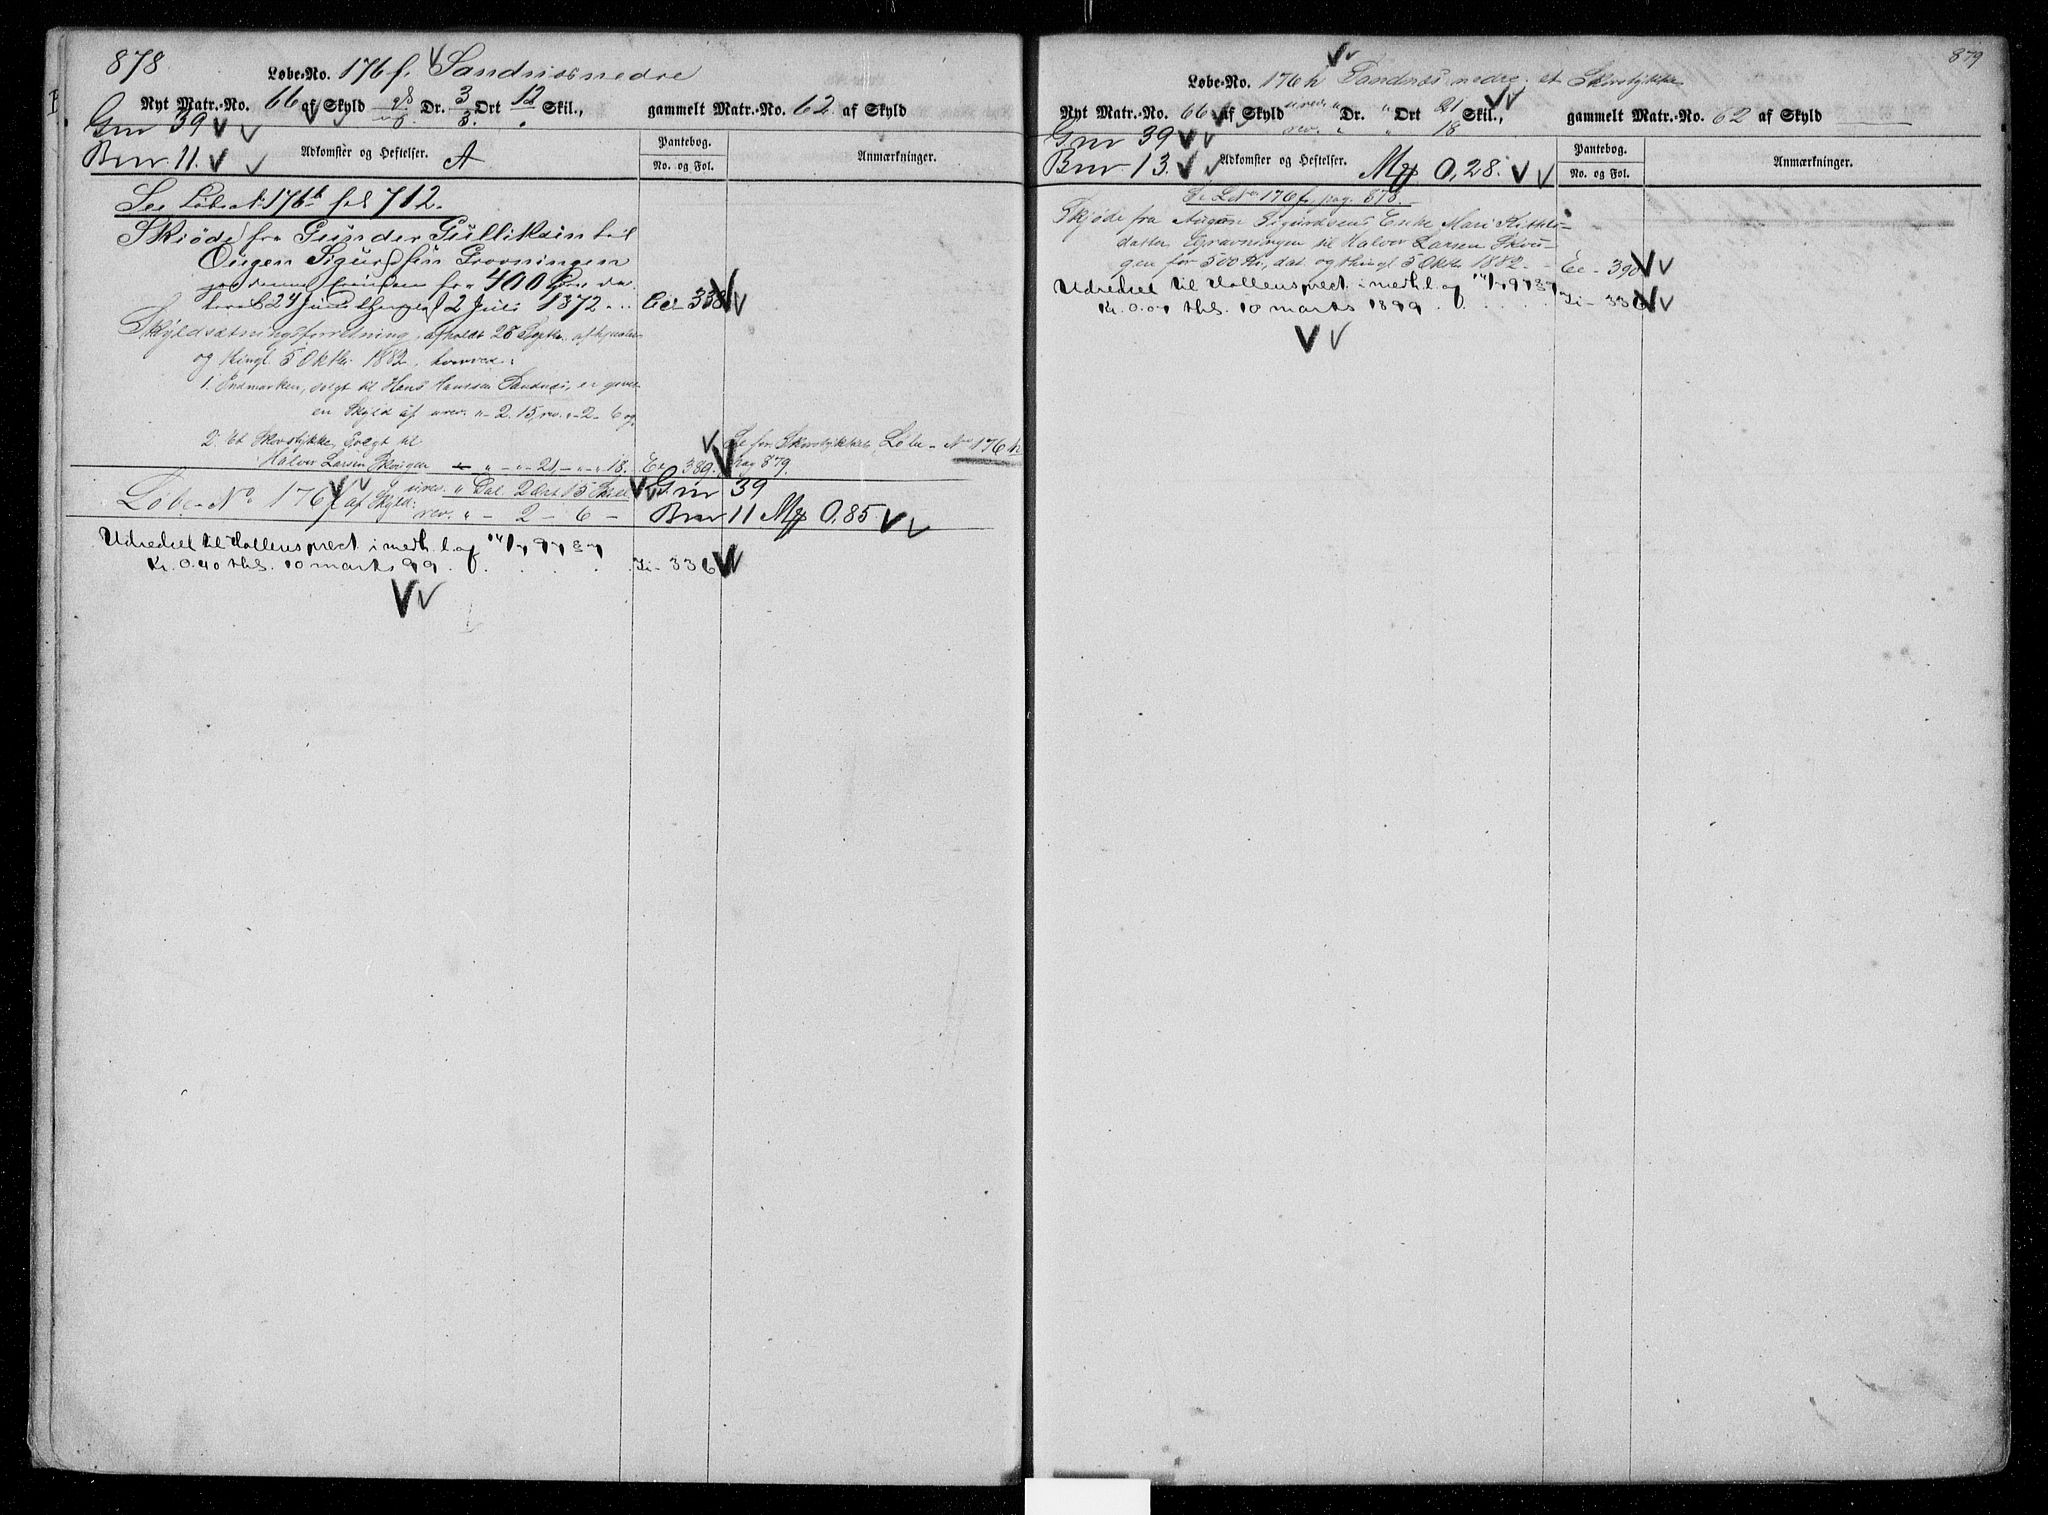 878
Løbe-No. 176 f. Sandnæs nedre
Nyt Matr.-No. 66 af Skyld Dr. 3 Ort 12 Skil., gammelt Matr.-No. 62 af Skyld
3.
Gnr 39
Bnr 11. Adkomster og Heftelser. A
Pantebog.
No. og Fol.
Anmærkninger.
See Løbe No 176 b fol 712.
Skjøde fra Gunder Gulliksen til
Ougen Sigurdsen Grovningen
paa denne Eiendom for 400 Spd. da-
teret 24 Juni thinglyst 2 Juli 1872 . . Cc - 338
Skyldsætningsforretning, afholdt 28 Septbr.
og thingl. 5 Oktbr. 1882, hvorved:
1. Indmarken, solgt til Hans Hansen Sandnæs, er given
en Skyld af urev. " - 2. 15, rev. " - 2 - 6 og
2. Et Skovstykke, solgt til
Halvor Larsen Skougen " - " - 21, - " - " 18. - Ee 389.
Se for Skovstykket, Løbe-No 176 h
pag 879.
Løbe-No 176 f af Skyld: urev. " Dal. 2 Ort 15 Skill
rev. " - 2 - 6 -
Gnr 39
Bnr 11 My 0,85
Udredsel til i medh. l. af
Kr. 0.40 thl. 10 marts 99 . . . . . Ii - 336
879
Løbe-No. 176 h Sandnæs nedre et Skovstykke
Nyt Matr.-No. 66 af Skyld urev. " Dr. " Ort 21 Skil., gammelt Matr.-No. 62 af Skyld
rev. " " 18
Gnr 39
Bnr 13. Adkomster og Heftelser. My 0,28.
Pantebog.
No. og Fol.
Anmærkninger.
Se L No 176 f, pag. 878.
Skjøde fra Augon Sigurdsens Enke Mari Kittils-
datter Grovningen til Halvor Larsen Skou-
gen for 500 Kr., dat. og thingl 5 Oktr. 1882. - Ee - 390
Udredsel til i medh. l. af
Kr. 0.01 thl. 10 marts 1899 . . . . Ii - 336